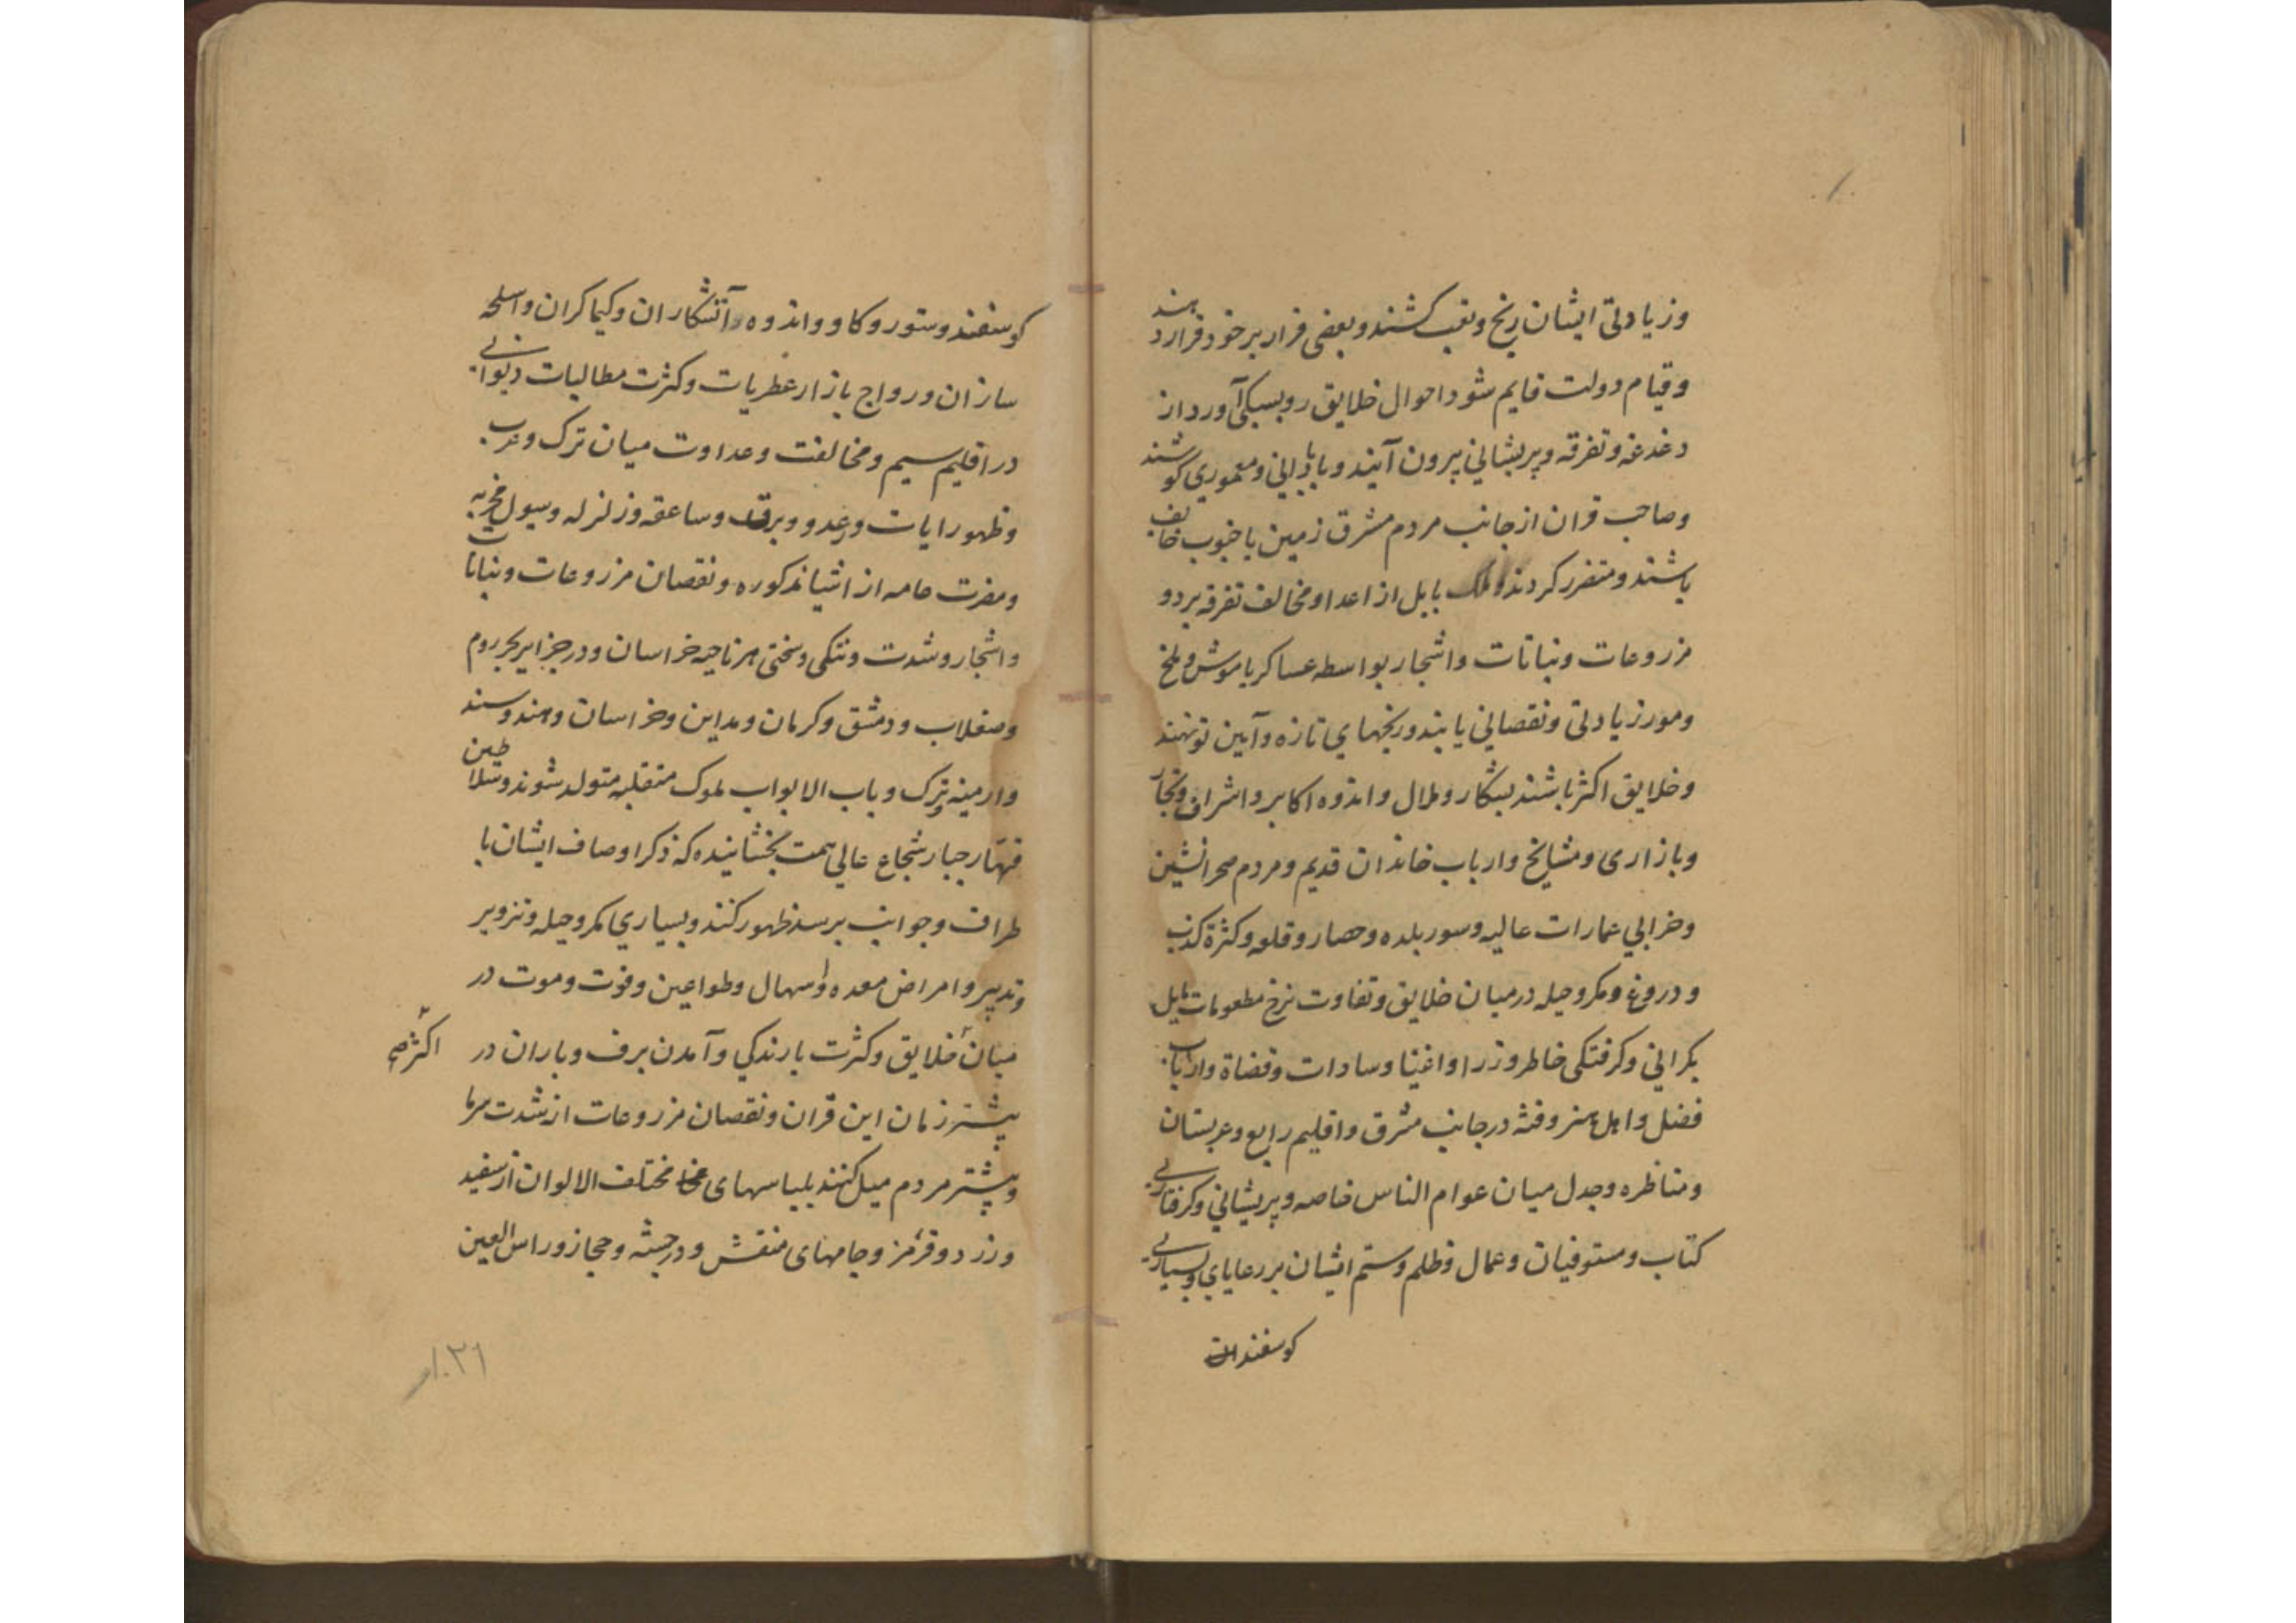 وزیادتی ایشان رنج وتعب کشند وبعضی فرار بر خود قرار دهند
وقیام دولت قایم شود احوال خلایق رو بسبکی آورد از
دغدغه وتفرقه وپریشانی بیرون آیند وبابادانی ومعموری کوشند
وصاحب قران از جانب مردم مشرق زمین یا جنوب خائف
باشند ومتضرر کردند وملک بابل از اعدا ومخالف تفرقه بر دو
مزروعات ونباتات واشجار بواسطه عساکر یا موش وملخ
ومور زیادتی ونقصانی یابند ورنجهای تازه وآیین نو نهند
وخلایق اکثر باشند بیکار وملال واندوه اکابر واشراف وتجار
وبازاری ومشایخ وارباب خاندان قدیم ومردم صحرانشین
وخرابی عمارات عالیه وسور بلده وحصار وقلعه وکثرة کذب
ودروغ ومکر وحیله درمیان خلایق وتفاوت نرخ مطعومات مایل
بکرانی وکرفتکی خاطر وزرا واغنیا وسادات وقضاة وارباب
فضل واهل هنر وفتنه در جانب مشرق واقلیم رابع وعربستان
ومناظره وجدل میان عوام الناس خاصه وپریشانی وکرفتاری
کتاب ومستوفیان وعمال وظلم وستم ایشان بر رعایای وبسیاری
کوسفندان
کوسفند وستور وکاو واندوه آتشکاران وکیماکران واسلحه
سازان ورواج بازار عطریات وکثرت مطالبات دیوانی
در اقلیم سیم ومخالفت وعداوت میان ترک وعرب
وظهور ایات ورعد وبرق وساعقه وزلزله وسیول مخربه
ومضرت عامه از اشیا مذکوره ونقصان مزروعات ونباتات
واشجار وشدت وتنکی وسختی هر ناحیه خراسان ودر جزایر بحر روم
وصقلاب ودمشق وکرمان ومداین وخراسان وهند وسند
وارمینه وترک وباب الابواب ملوک متقلبه متولد شوند وسلاطین
قهار جبار شجاع عالی همت بخشاینده که ذکر اوصاف ایشان با
طراف وجوانب برسد ظهور کنند وبسیاری مکر وحیله وتزویر
وتدبیر وامراض معده واسهال وطواعین وفوت وموت در
میان خلایق وکثرت بارندکی وآمدن برف وباران در
اکثر صح
پیشتر زمان این قران ونقصان مزروعات از شدت سرما
وپیشتر مردم میل کنند بلباسهای مختلف الالوان از سفید
وزرد وقرمز وجامهای منقش ودر حبشه وحجاز وراس العین